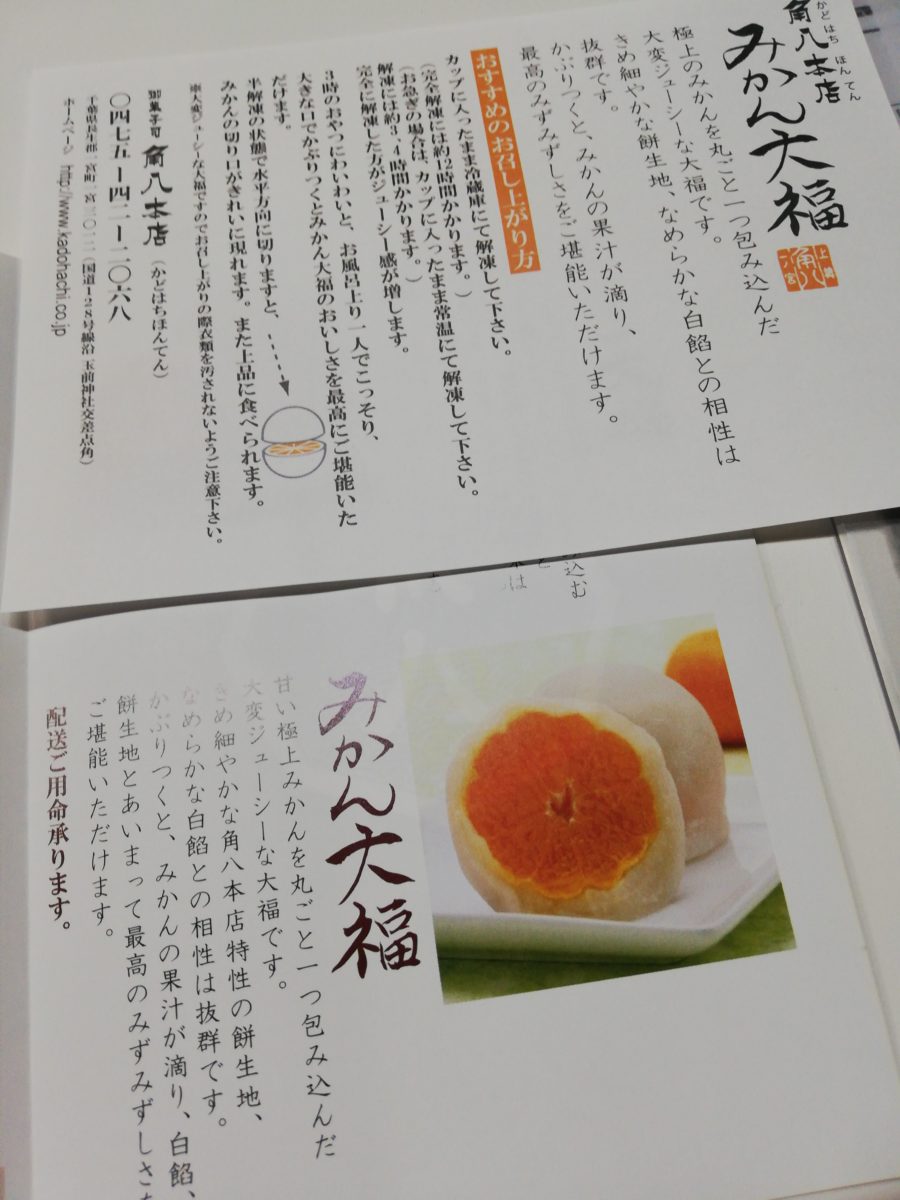 角八本店
かどはち ほんてん
みかん大福
上総
一宮
角八
極上のみかんを丸ごと一つ包み込んだ
大変ジューシーな大福です。
きめ細やかな餅生地、なめらかな白餡との相性は
抜群です。
かぶりつくと、みかんの果汁が滴り、
最高のみずみずしさをご堪能いただけます。
おすすめのお召し上がり方
カップに入ったまま冷蔵庫にて解凍して下さい。
(完全解凍には約12時間かかります。)
(お急ぎの場合は、カップに入ったまま常温にて解凍して下さい。
解凍には約3、4時間かかります。)
完全に解凍した方がジューシー感が増します。
3時のおやつにわいわいと、お風呂上り一人でこっそり、
大きな口でかぶりつくとみかん大福のおいしさを最高にご堪能いた
だけます。
半解凍の状態で水平方向に切りますと、
みかんの切り口がきれいに現れます。また上品に食べられます。
※大変ジューシーな大福ですのでお召し上がりの際衣類を汚されないようご注意下さい。
御菓子司 角八本店 (かどはちほんてん)
〇四七五-四二-二〇六八
千葉県長生郡一宮町一宮三〇一二(国道128号線沿 玉前神社交差点角)
ホームページ http://www.kadohachi.co.jp
込む
と
本は
みかん大福
甘い極上みかんを丸ごと一つ包み込んだ
大変ジューシーな大福です。
きめ細やかな角八本店特性の餅生地、
なめらかな白餡との相性は抜群です。
かぶりつくと、みかんの果汁が滴り、白餡、
餅生地とあいまって最高のみずみずしさを
ご堪能いただけます。
配送ご用命承ります。